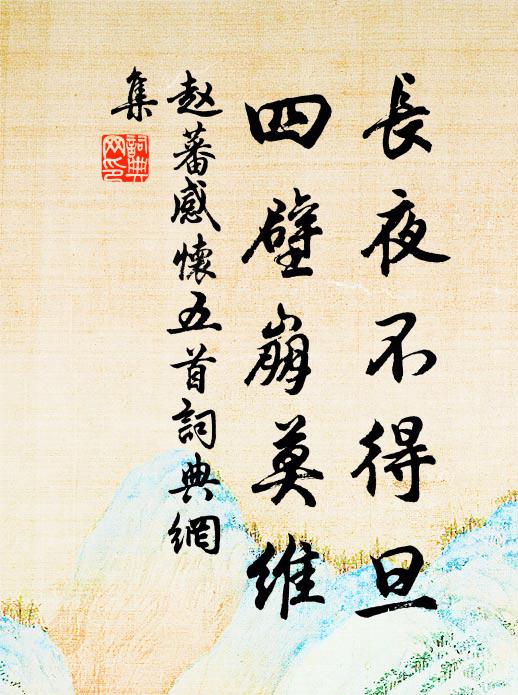 長夜不得旦
四壁崩莫維
赵蕃感懷五首詞典網
集
詞典
网印